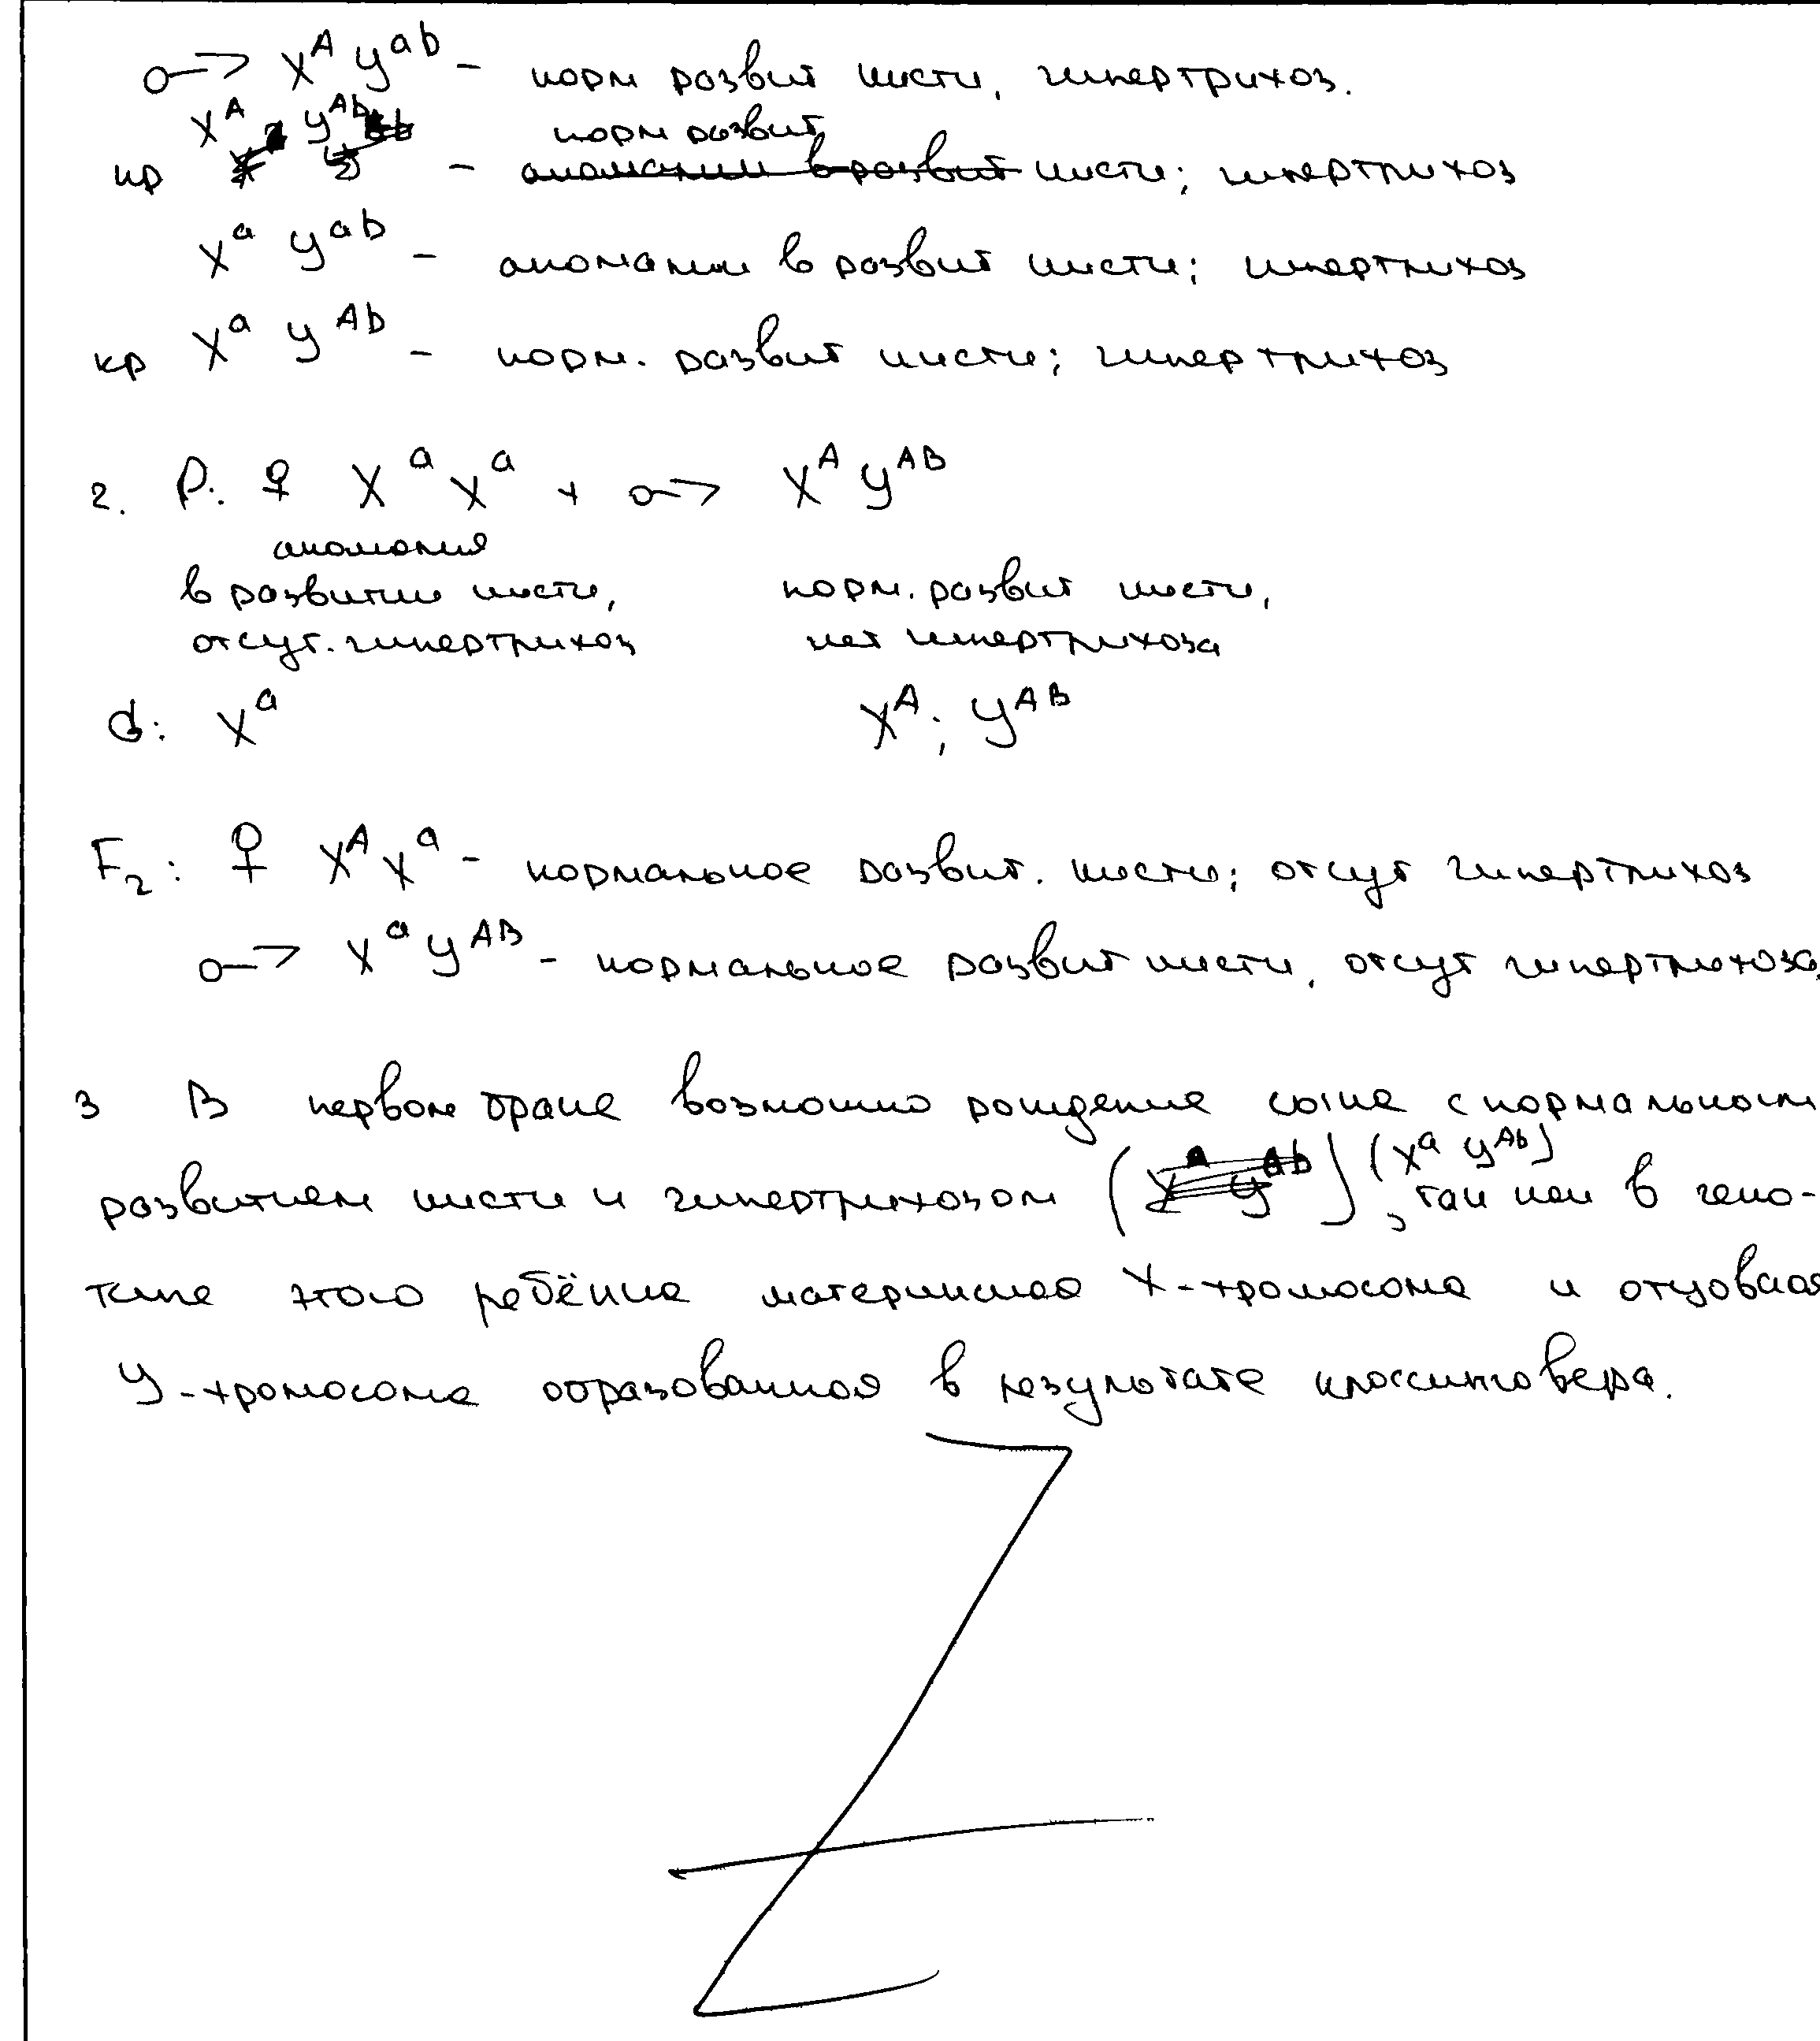 ♂ X^A Y^ab - норм развит кисти, гипертрихоз.
X^A Y^Ab норм развит
кр - аномалии в развит кисти; гипертрихоз
X^a Y^ab - аномалии в развит кисти; гипертрихоз
кр X^a Y^Ab - норм. развит кисти; гипертрихоз
2. P: ♀ X^a X^a × ♂ X^A Y^AB
аномалия
в развитии кисти, норм. развит кисти,
отсут. гипертрихоз нет гипертрихоза
G: X^a X^A; Y^AB
F₂: ♀ X^A X^a - нормальное развит. кисти; отсут гипертрихоз
♂ X^a Y^AB - нормальное развит кисти, отсут гипертрихоза,
3 В первом браке возможно рождение сына с нормальным
развитием кисти и гипертрихозом (X^a Y^Ab), так как в гено-
типе этого ребёнка материнская X-хромосома и отцовская
Y-хромосома образованная в результате кроссинговера.